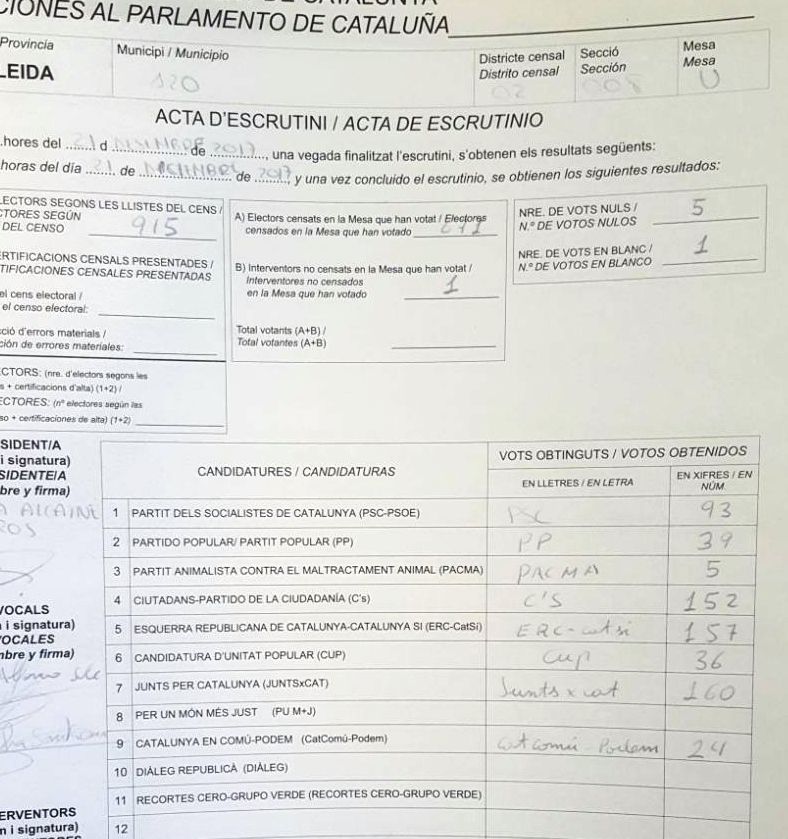 CIONES AL PARLAMENTO DE CATALUÑA
Provincia
LEIDA
Municipi / Municipio
120
Districte censal
Distrito censal
02
Secció
Sección
008
Mesa
Mesa
U
ACTA D'ESCRUTINI / ACTA DE ESCRUTINIO
hores del 21 d de 2017, una vegada finalitzat l'escrutini, s'obtenen els resultats següents:
horas del día 21 de DICIEMBRE de 2017, y una vez concluido el escrutinio, se obtienen los siguientes resultados:
LECTORS SEGONS LES LLISTES DEL CENS /
CTORES SEGÚN
DEL CENSO 915
ERTIFICACIONS CENSALS PRESENTADES /
TIFICACIONES CENSALES PRESENTADAS
el cens electoral /
el censo electoral:
ció d'errors materials /
ción de errores materiales:
ECTORS: (nre. d'electors segons les
s + certificacions d'alta) (1+2) /
ECTORES: (nº electores según las
so + certificaciones de alta) (1+2)
A) Electors censats en la Mesa que han votat / Electores
censados en la Mesa que han votado
B) Interventors no censats en la Mesa que han votat /
Interventores no censados
en la Mesa que han votado 1
Total votants (A+B) /
Total votantes (A+B)
NRE. DE VOTS NULS /
N.º DE VOTOS NULOS 5
NRE. DE VOTS EN BLANC /
N.º DE VOTOS EN BLANCO 1
SIDENT/A
i signatura)
SIDENTE/A
bre y firma)
VOCALS
i signatura)
VOCALES
mbre y firma)
ERVENTORS
n i signatura)
CANDIDATURES / CANDIDATURAS
VOTS OBTINGUTS / VOTOS OBTENIDOS
EN LLETRES / EN LETRA
EN XIFRES / EN
NÚM.
1 PARTIT DELS SOCIALISTES DE CATALUNYA (PSC-PSOE) PSC 93
2 PARTIDO POPULAR/ PARTIT POPULAR (PP) PP 39
3 PARTIT ANIMALISTA CONTRA EL MALTRACTAMENT ANIMAL (PACMA) PACMA 5
4 CIUTADANS-PARTIDO DE LA CIUDADANÍA (C's) C'S 152
5 ESQUERRA REPUBLICANA DE CATALUNYA-CATALUNYA SI (ERC-CatSí) ERC-catsi 157
6 CANDIDATURA D'UNITAT POPULAR (CUP) Cup 36
7 JUNTS PER CATALUNYA (JUNTSxCAT) Juntsxcat 160
8 PER UN MÓN MÉS JUST (PU M+J)
9 CATALUNYA EN COMÚ-PODEM (CatComú-Podem) CatComú-Podem 24
10 DIÀLEG REPUBLICÀ (DIÀLEG)
11 RECORTES CERO-GRUPO VERDE (RECORTES CERO-GRUPO VERDE)
12